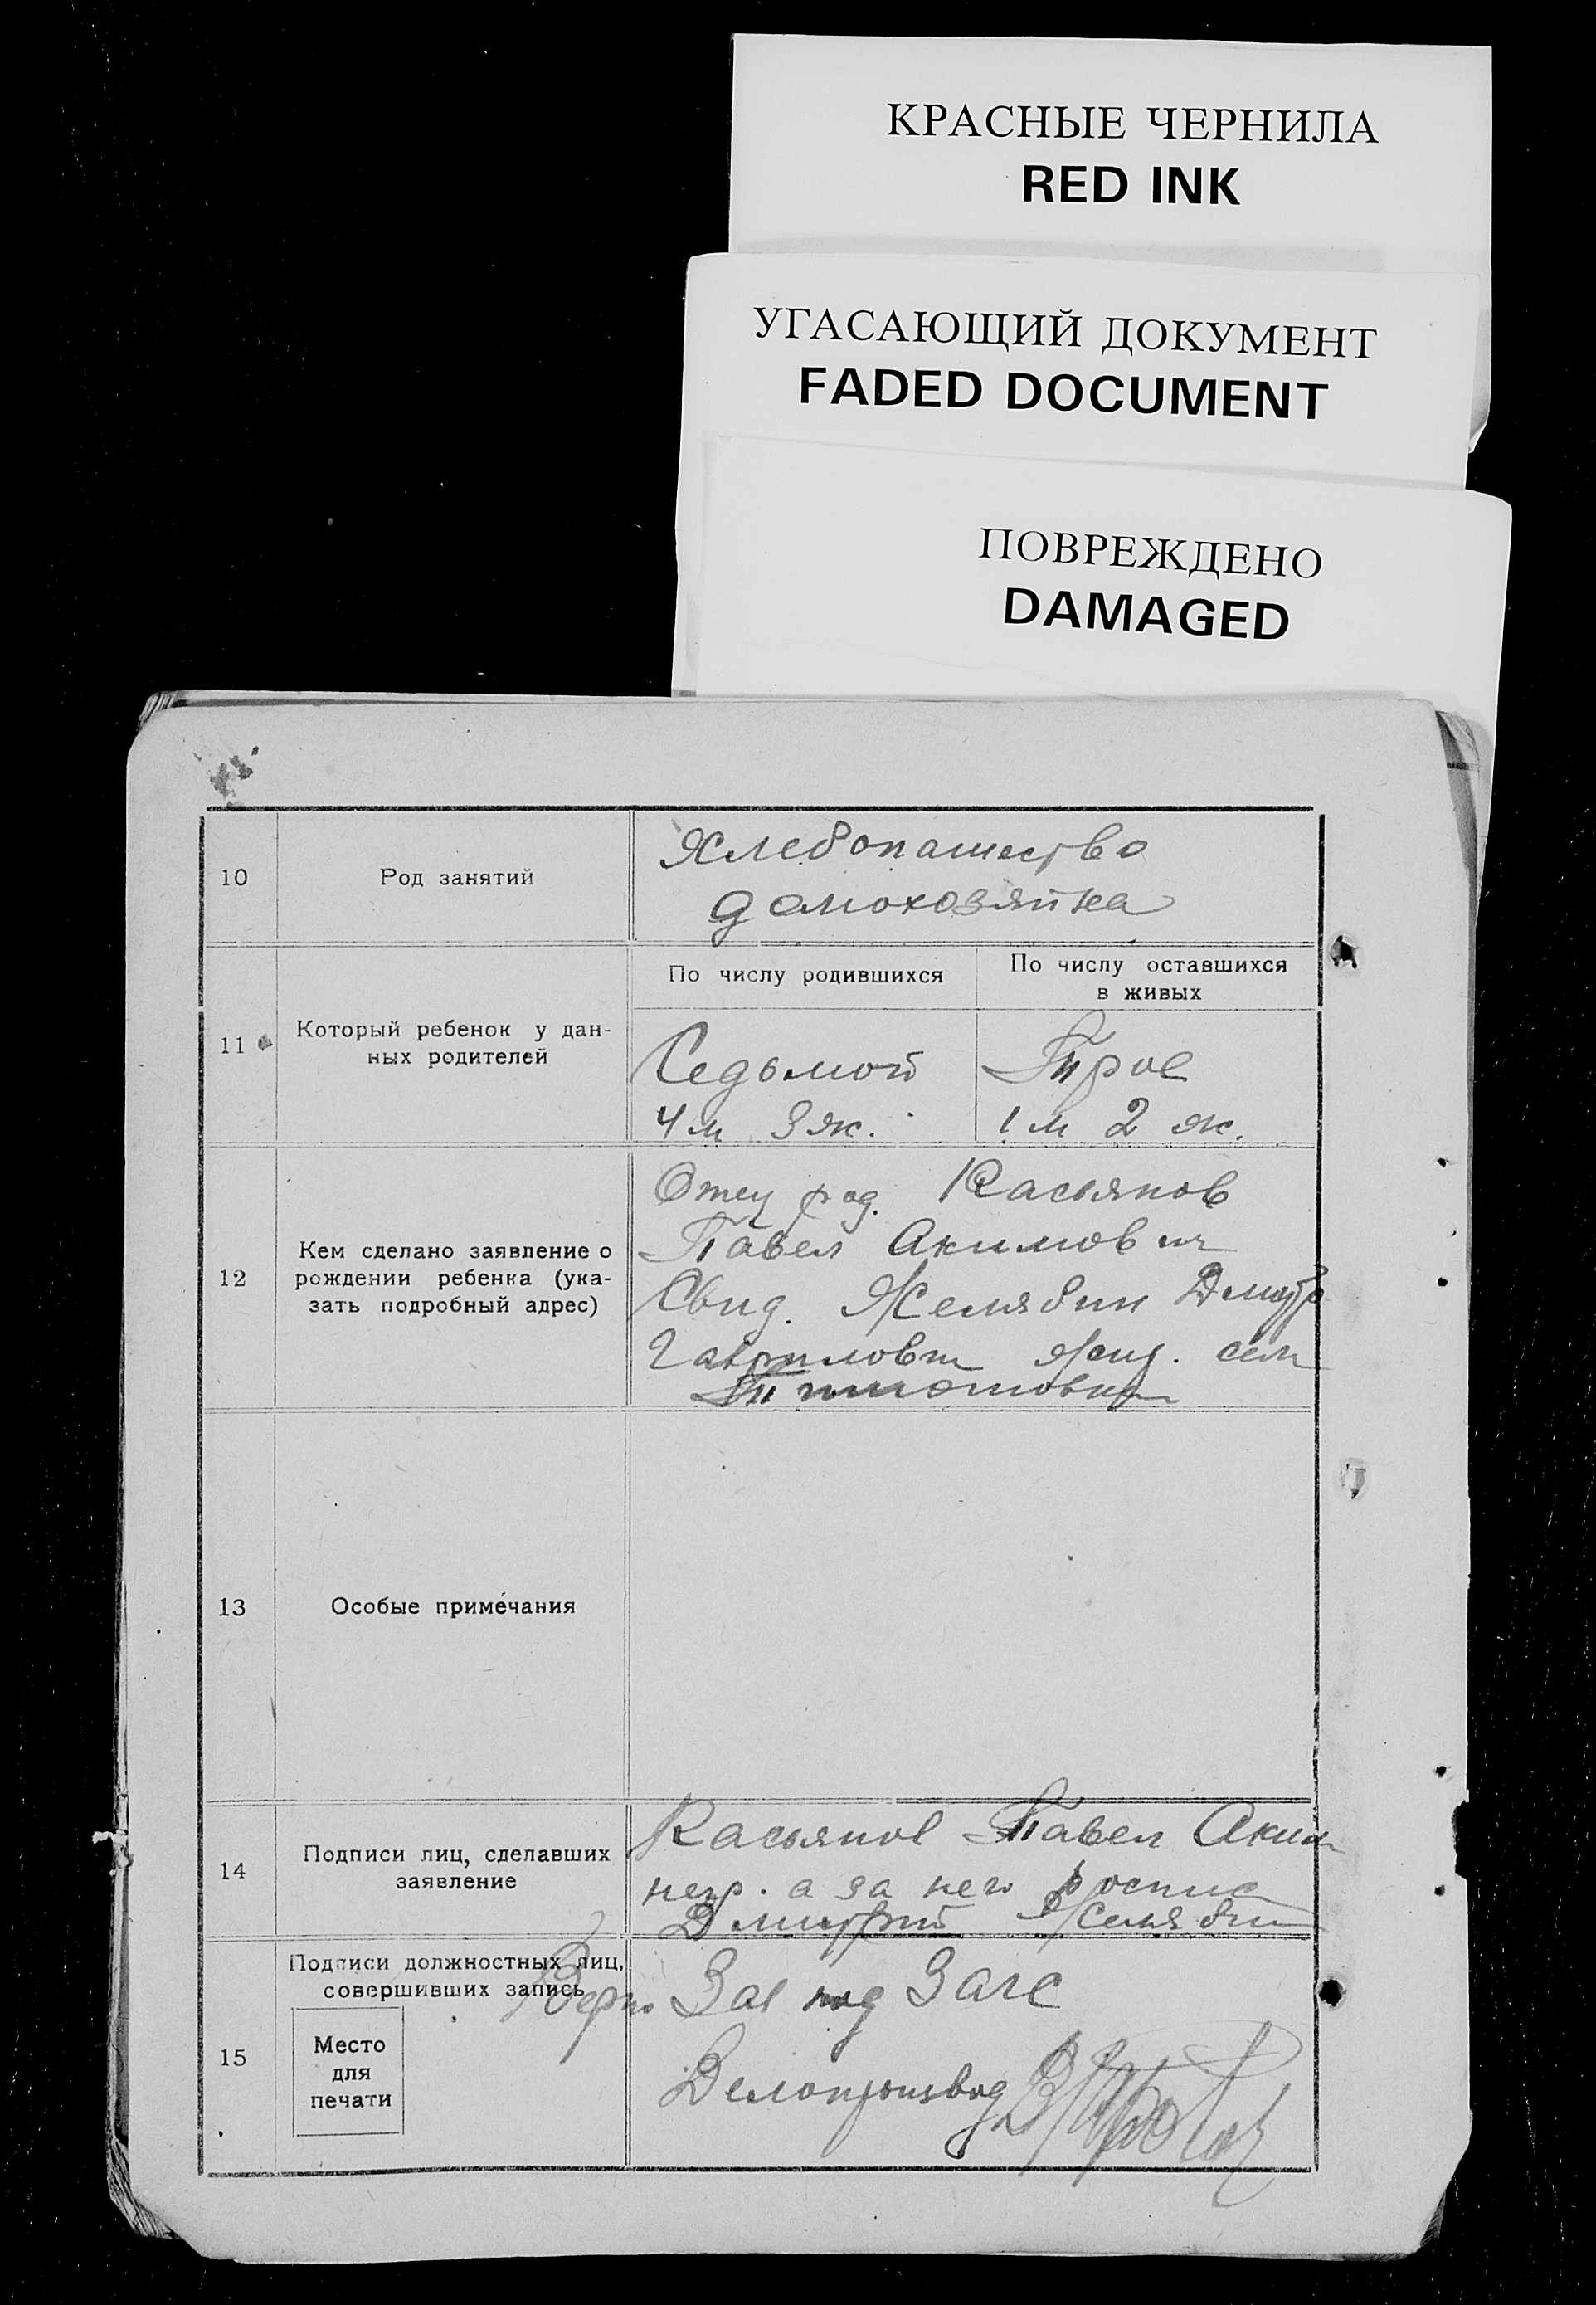 КРАСНЫЕ ЧЕРНИЛА
RED INK
УГАСАЮЩИЙ ДОКУМЕНТ
FADED DOCUMENT
ПОВРЕЖДЕНО
DAMAGED
10
Род занятий
Хлебопашество
домохозяйка
11
Который ребенок у дан-
ных родителей
По числу родившихся
Седьмой
4 м 3 ж.
По числу оставшихся
в живых
Трое
1 м 2 ж.
12
Кем сделано заявление о
рождении ребенка (ука-
зать подробный адрес)
Отец род. Касьянов
Павел Акимович
Свид. Желябин Дмитр
Гаврилович жит. села
13
Особые примечания
14
Подписи лиц, сделавших
заявление
Касьянов Павел Аким
негр. а за него роспис
Дмитрий Желябин
15
Подписи должностных лиц,
совершивших запись
Место
для
печати
Верно
Зав под Загс
Делопроизвод